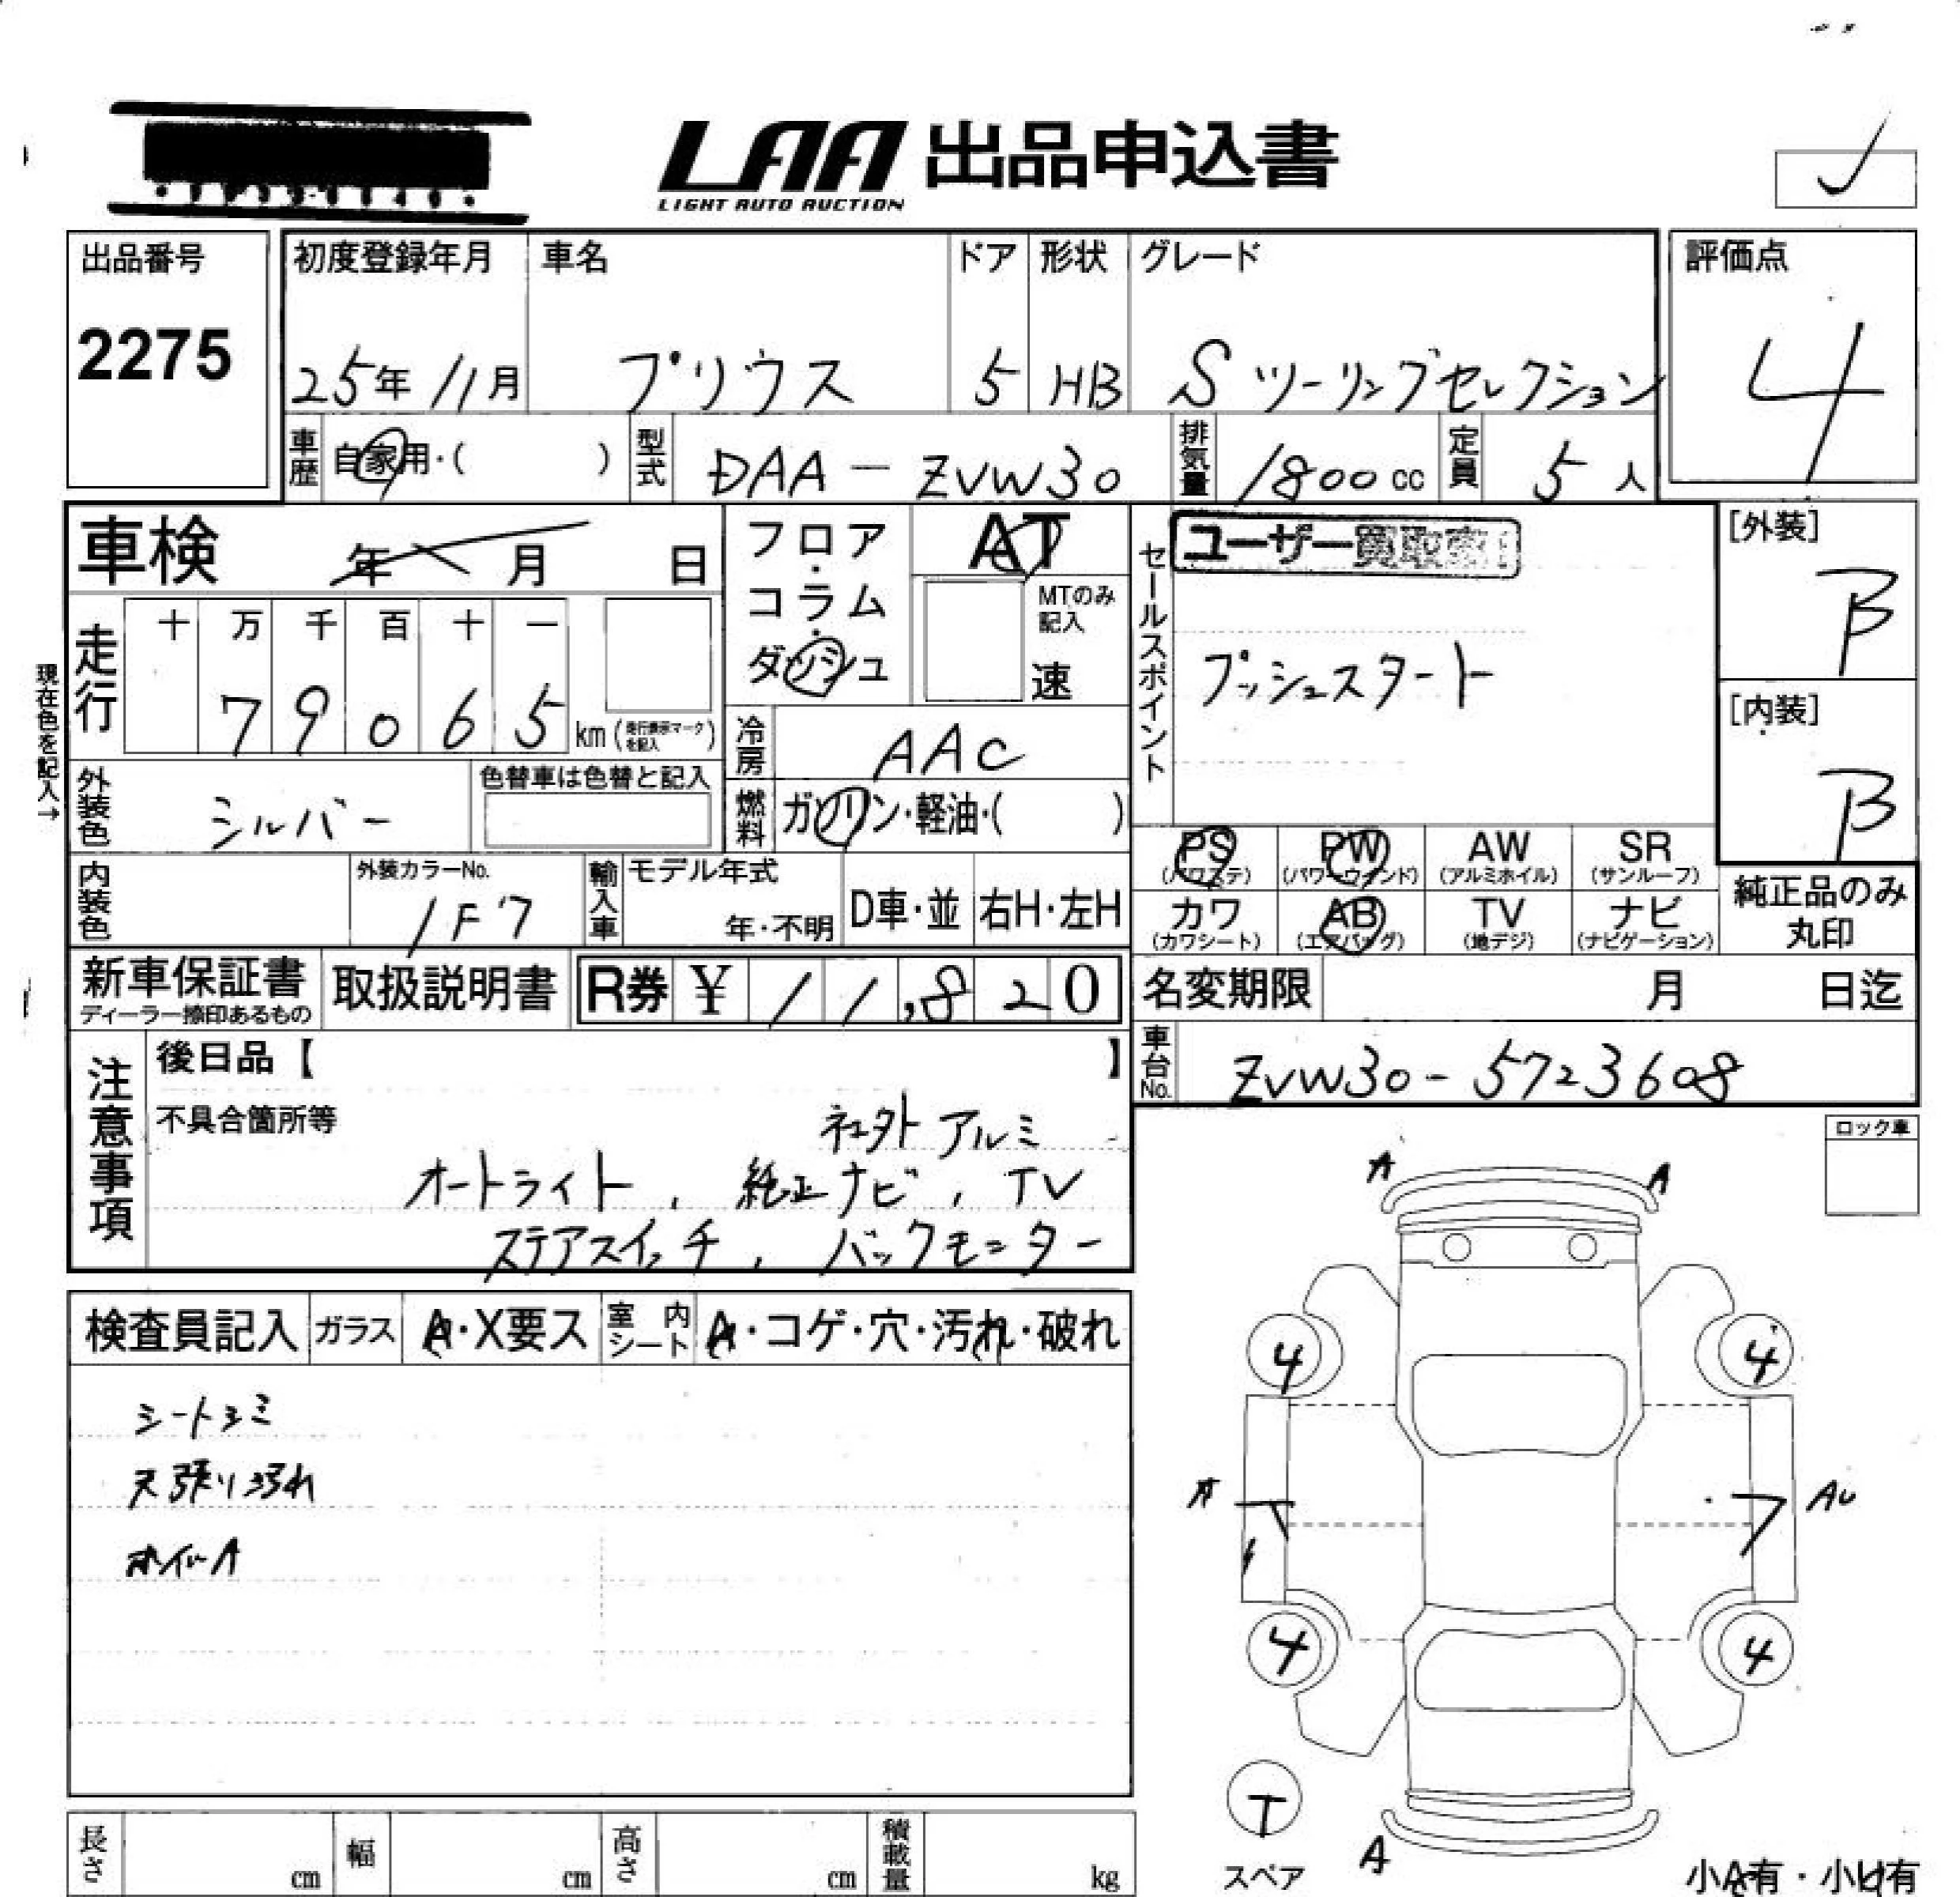 LAA 出品申込書
LIGHT AUTO AUCTION
出品番号
2275
初度登録年月
25年 11月
車名
プリウス
ドア
5
形状
HB
グレード
S ツーリングセレクション
評価点
4
車歴
自家用・( )
型式
DAA - ZVW30
排気量
1800 cc
定員
5 人
車検 年 月 日
フロア・コラム・ダッシュ
AT
MTのみ記入
速
セールスポイント
ユーザー買取車
プッシュスタート
[外装]
B
[内装]
B
現在色を記入→
走行
十 万 千 百 十 一
7 9 0 6 5 km
冷房
AAC
外装色
シルバー
色替車は色替と記入
燃料
ガソリン・軽油・( )
PS (パワステ)
PW (パワーウインド)
AW (アルミホイル)
SR (サンルーフ)
カワ (カワシート)
AB (エアバッグ)
TV (地デジ)
ナビ (ナビゲーション)
純正品のみ
丸印
内装色
外装カラーNo.
1F7
輸入車
モデル年式
年・不明
D車・並
右H・左H
新車保証書
ディーラー捺印あるもの
取扱説明書
R券 ¥ 11,820
名変期限 月 日迄
車台No.
ZVW30-5723608
注意事項
後日品【 】
不具合箇所等
社外アルミ
オートライト, 純正ナビ, TV
ステアスイッチ, バックモニター
ロック車
検査員記入
ガラス
A・X要ス
室内シート
A・コゲ・穴・汚れ・破れ
シートシミ
天張り汚れ
ホイールA
A A
4 4
A AU
4 4
T
スペア
A
小A有・小U有
長さ cm
幅 cm
高さ cm
積載量 kg